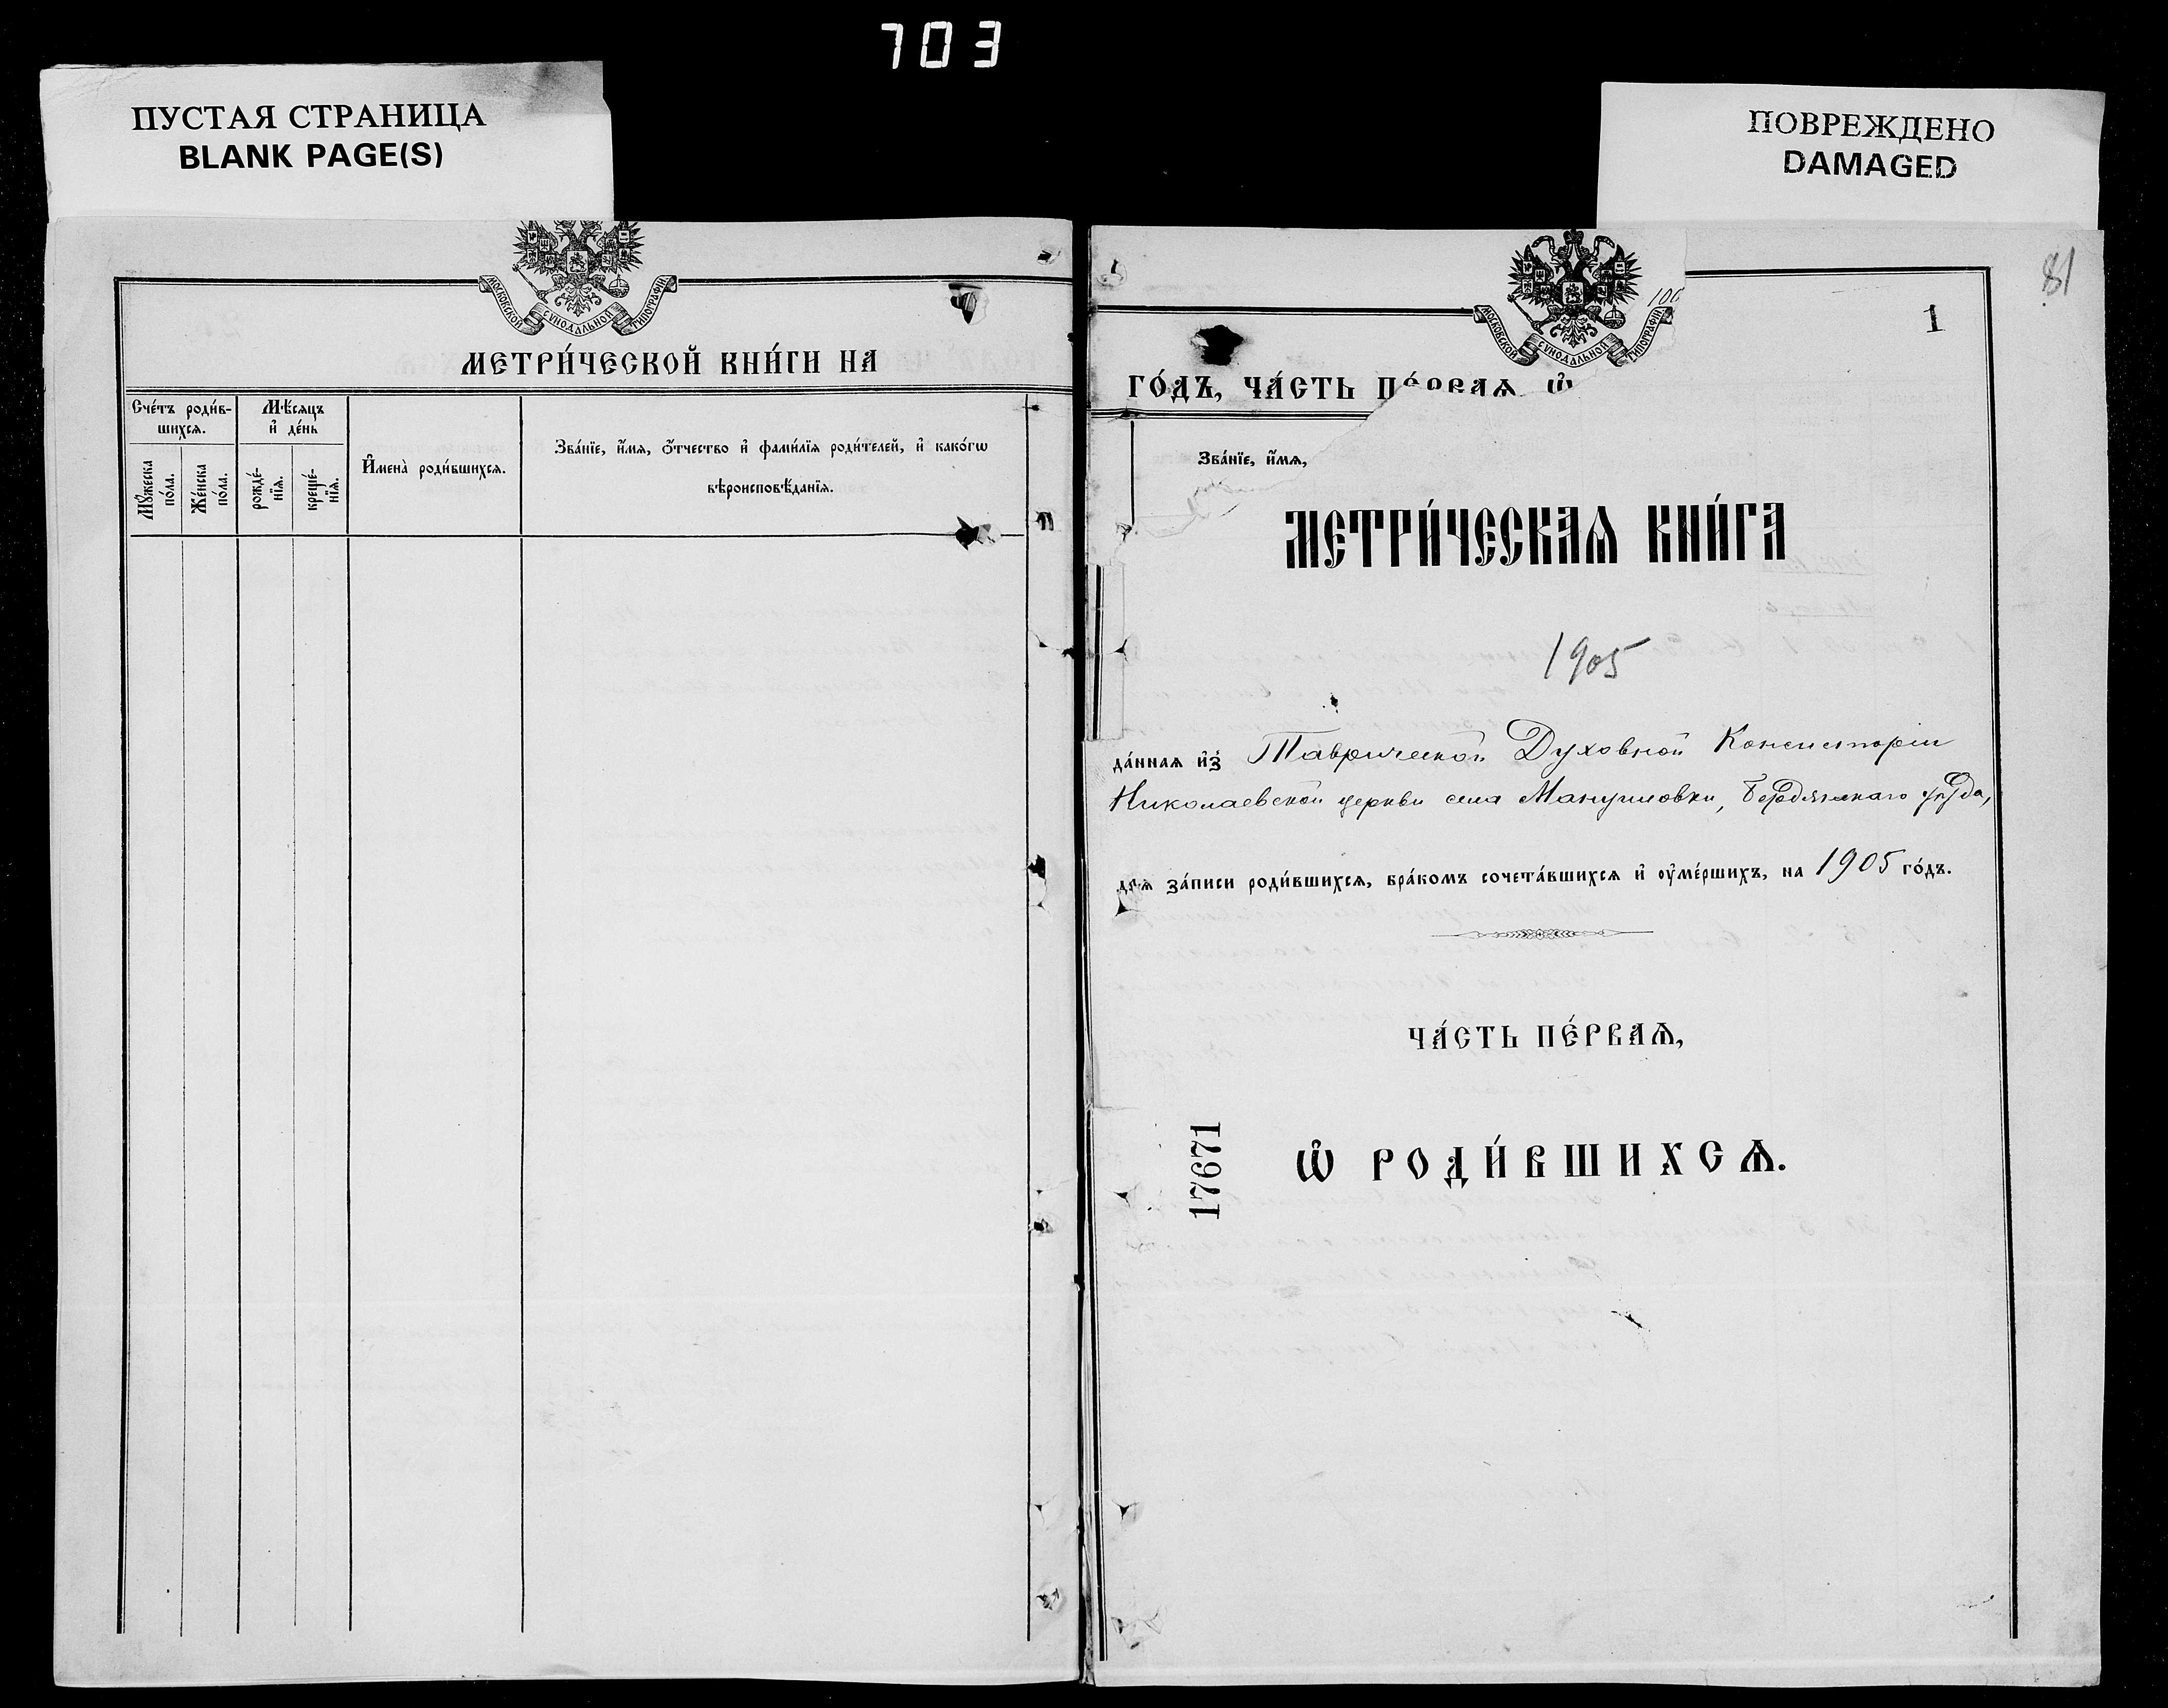 703
ПУСТАЯ СТРАНИЦА
BLANK PAGE(S)
ПОВРЕЖДЕНО
DAMAGED
МОСКОВСКОЙ СУНОДАЛЬНОЙ ТИПОГРАФІИ
МЕТРИ́ЧЕСКОЙ КНИ́ГИ НА
Сче́тъ роди́в-
шихсѧ.
Мѣ́сѧцъ
и҆ де́нь
И҆мена̀ роди́вшихсѧ.
Зва́нїе, и҆́мѧ, ѻ҆́тчество и҆ фами́лїѧ роди́телей, и҆ како́гѡ
вѣроисповѣ́данїѧ.
Мꙋ́жеска
по́ла.
Же́нска
по́ла.
рожде́-
нїѧ.
креще́-
нїѧ.
81
1
100
МОСКОВСКОЙ СУНОДАЛЬНОЙ ТИПОГРАФІИ
ГО́ДЪ, ЧА́СТЬ ПЕ́РВАѦ Ѡ҆
Зва́нїе, и҆́мѧ,
МЕТРИ́ЧЕСКАѦ КНИ́ГА
1905
да́ннаѧ и҆з̾ Таврической Духовной Консисторіи
Николаевской церкви села Мануиловки, Бердянскаго уѣзда,
длѧ за́писи роди́вшихсѧ, бра́комъ сочета́вшихсѧ и҆ ᲂу҆ме́ршихъ, на 1905 го́дъ.
ЧА́СТЬ ПЕ́РВАѦ,
17671
Ѡ҆ РОДИ́ВШИХСѦ.